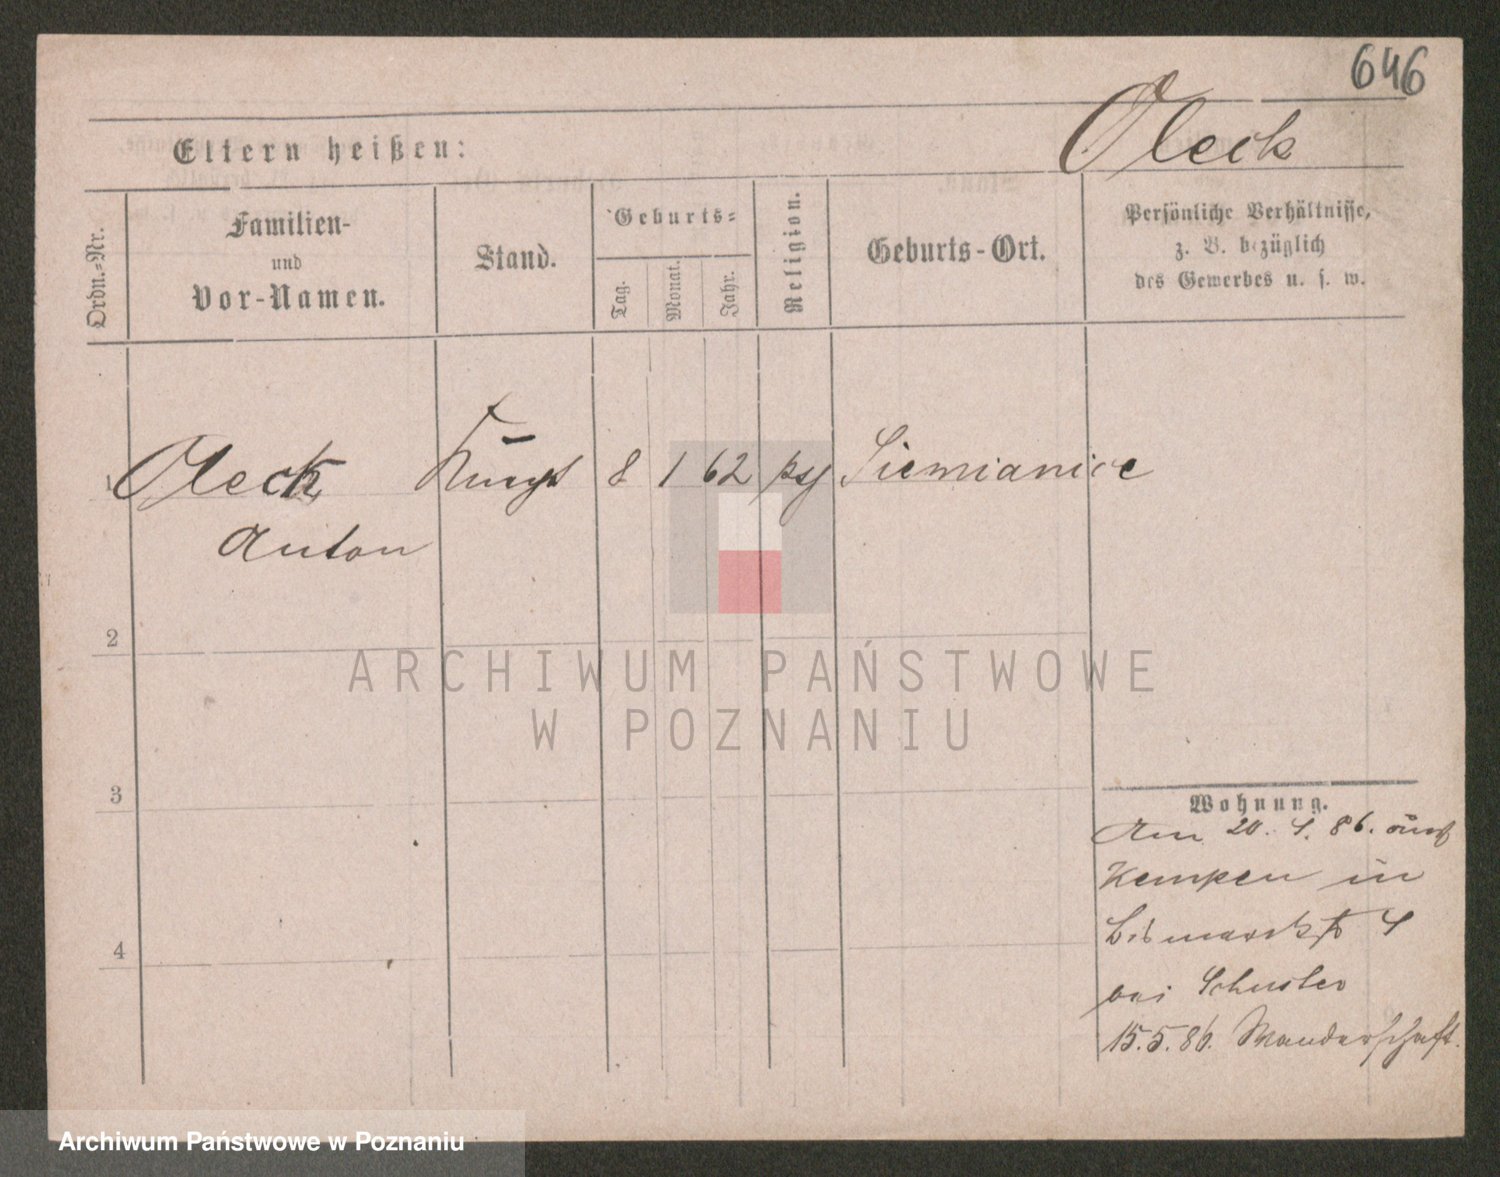 646
Oleck
Eltern heißen:
Ordn.=Nr.
Familien-
und
Vor-Namen.
Stand.
Geburts=
Tag.
Monat.
Jahr.
Religion.
Geburts-Ort.
Persönliche Verhältnisse,
z. B. bezüglich
des Gewerbes u. s. w.
1 Oleck 8 1 62 Siemianice
Anton
2
3
4
ARCHIWUM PAŃSTWOWE
W POZNANIU
Wohnung.
Am 20. 4. 86.
Kempen in
Bismarckstr 4
bei Schuster
15.5.86. Wanderschaft.
Archiwum Państwowe w Poznaniu